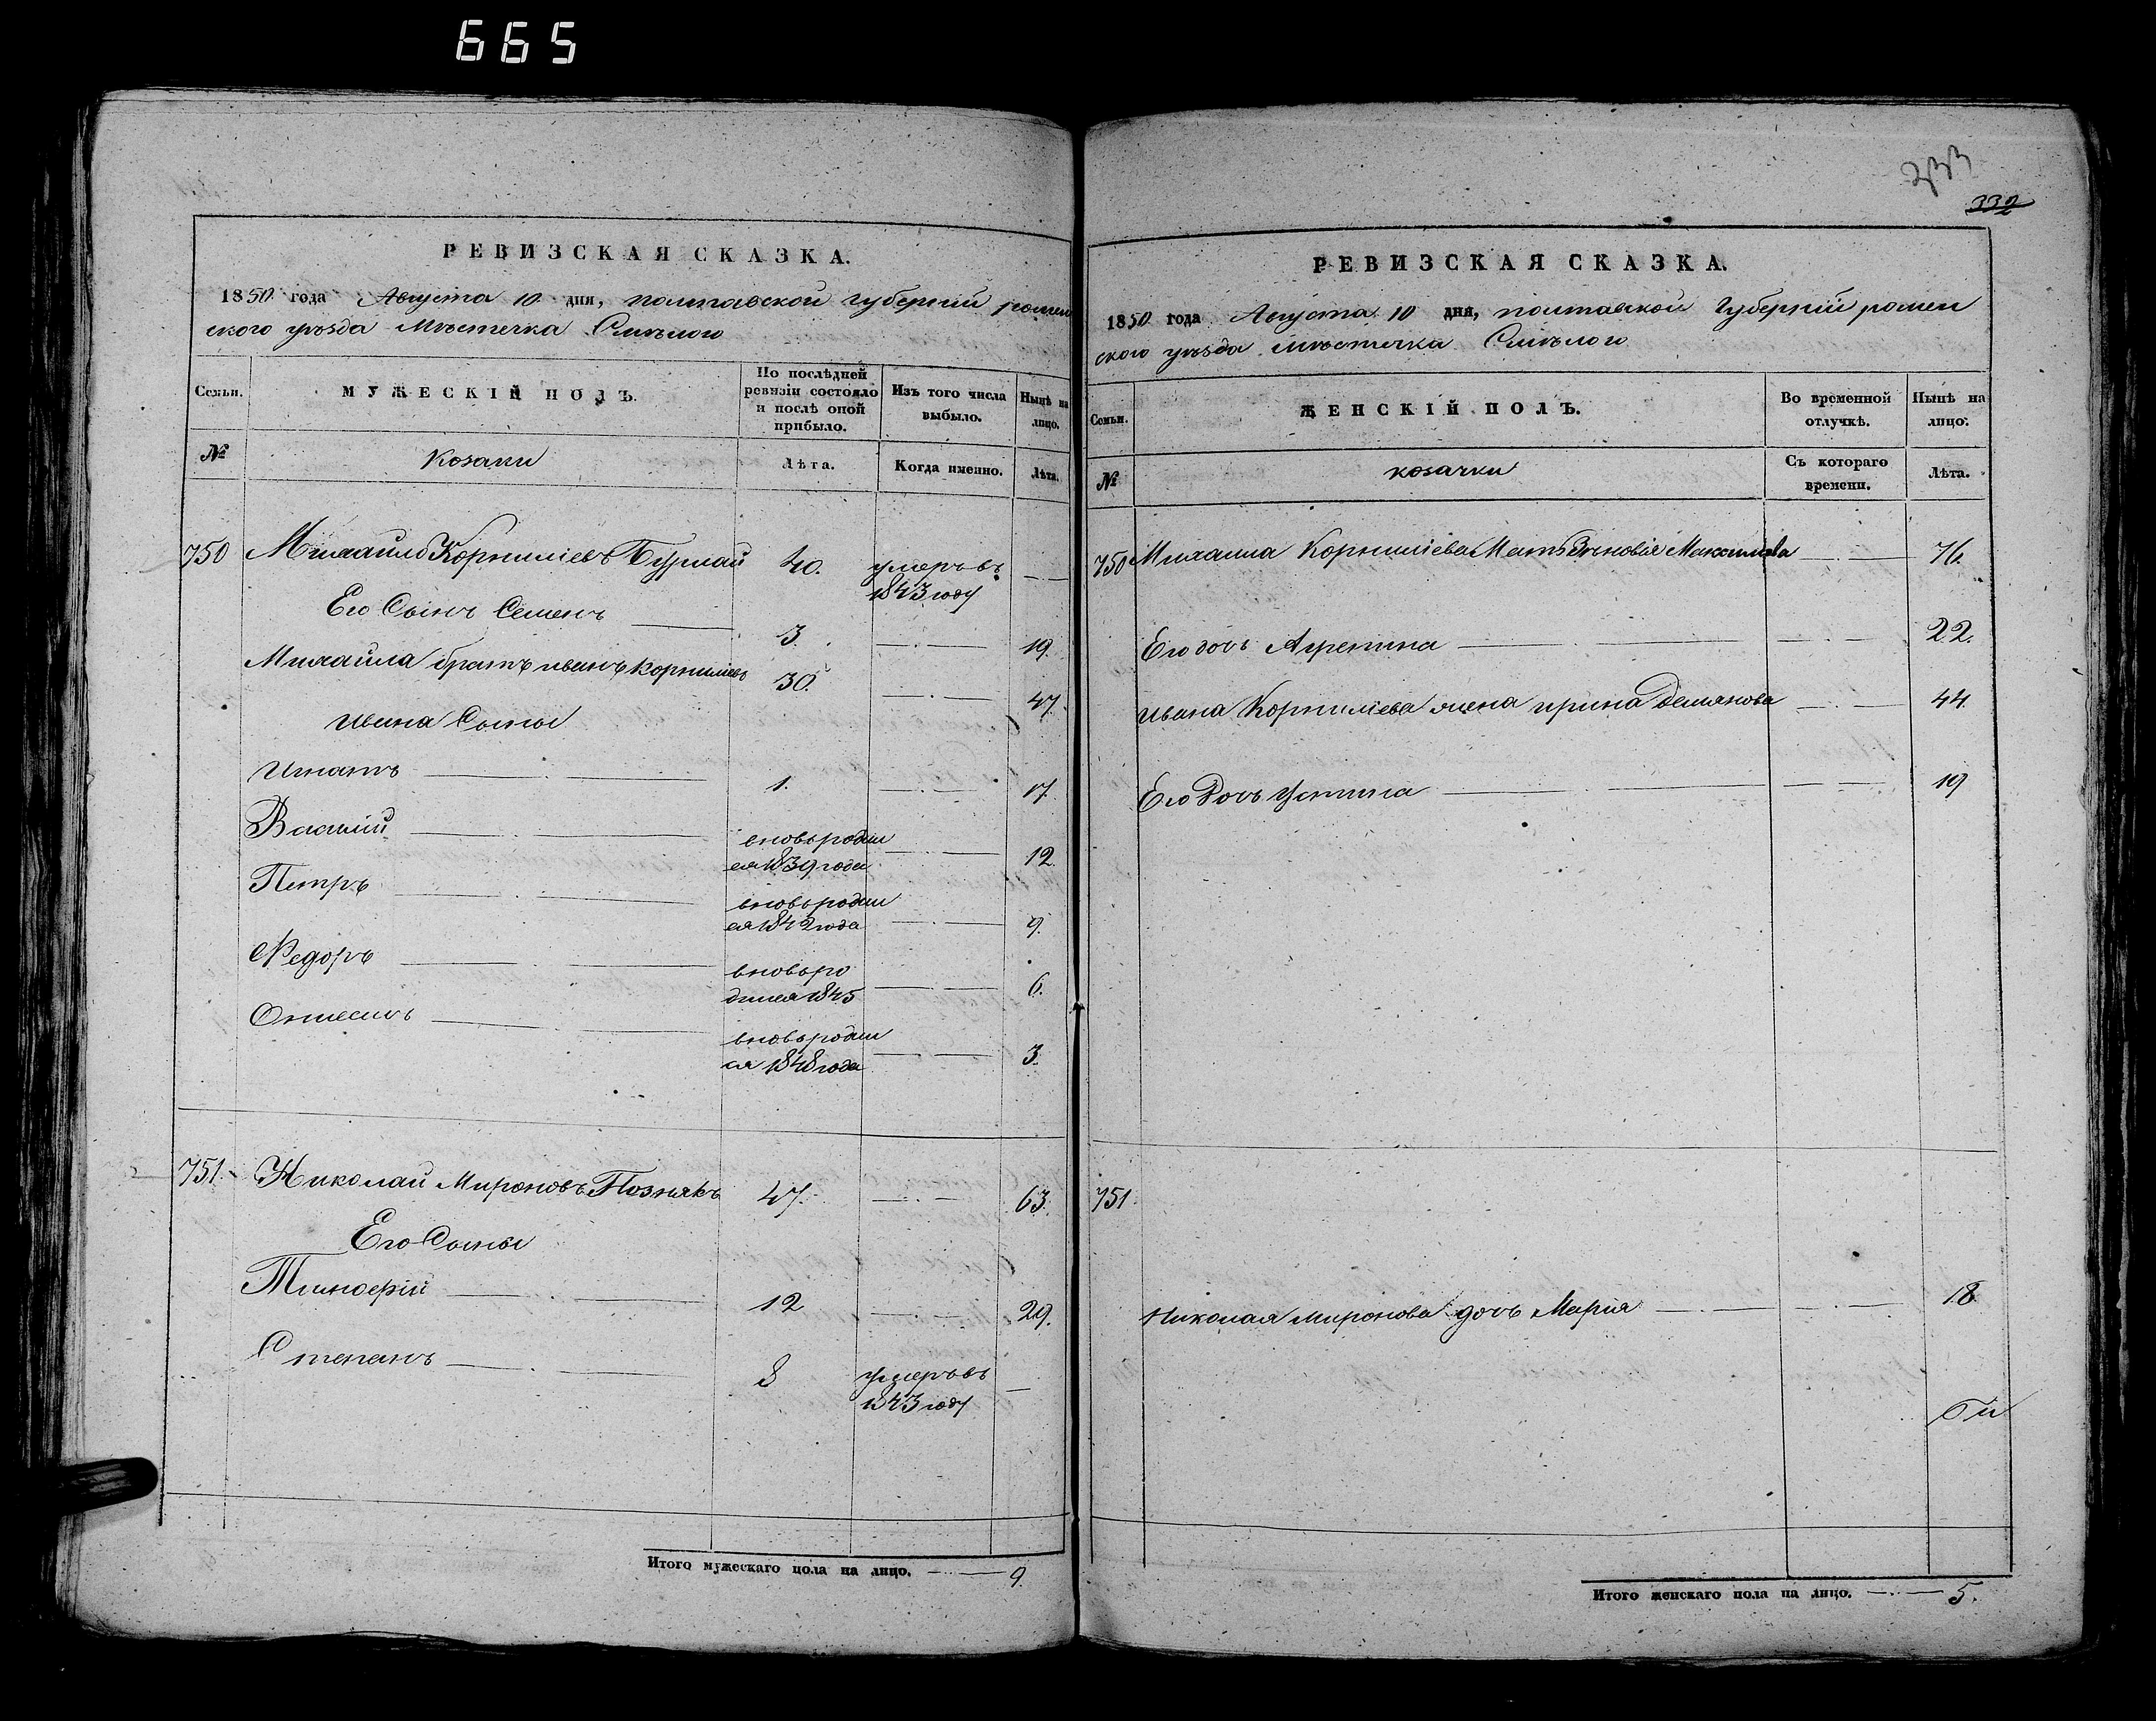 665
РЕВИЗСКАЯ СКАЗКА.
1850 года Августа 10 дня, полтавской губерніи ромен
ского уѣзда Мѣстечка Смѣлого
Семьи.
МУЖЕСКІЙ ПОЛЪ.
По послѣдней ревизіи состояло и послѣ оной прибыло.
Изъ того числа выбыло.
Нынѣ на лицо.
№
Козаки
Лѣта.
Когда именно.
Лѣта.
750 Михайло Корниліевъ Бурлай 40. умеръ въ 1843 году
Его Сынъ Семенъ 3. 19.
Михайла братъ иванъ корниліевъ 30. 47.
Ивана Сыны
Игнатъ 1. 17.
Василій вновь родил
ся 1839 года 12.
Петръ вновь родил
ся 1842 года 9.
Федоръ вновь ро
дился 1845 6.
Онисимъ вновь родил
ся 1848 года 3.
751. Николай Мироновъ Познякъ 47. 63.
Его Сыны
Тимофій 12 29.
Степанъ 8 умеръ въ
1843 году
Итого мужескаго пола на лицо. 9.
333
332
РЕВИЗСКАЯ СКАЗКА.
1850 года Августа 10 дня, полтавской Губерніи ромен
ского уѣзда мѣстечка Смѣлого
Семьи.
ЖЕНСКІЙ ПОЛЪ.
Во временной отлучкѣ.
Нынѣ на лицо.
№
козачки
Съ котораго времени.
Лѣта.
750 Михаила Корниліева Мать Максимова 76.
Его дочь Агрепина 22.
Ивана Корниліева жена ирина Демянова 44.
Его Дочь Устина 19
751
Николая миронова дочь Марія 18
Итого женскаго пола на лицо. 5.